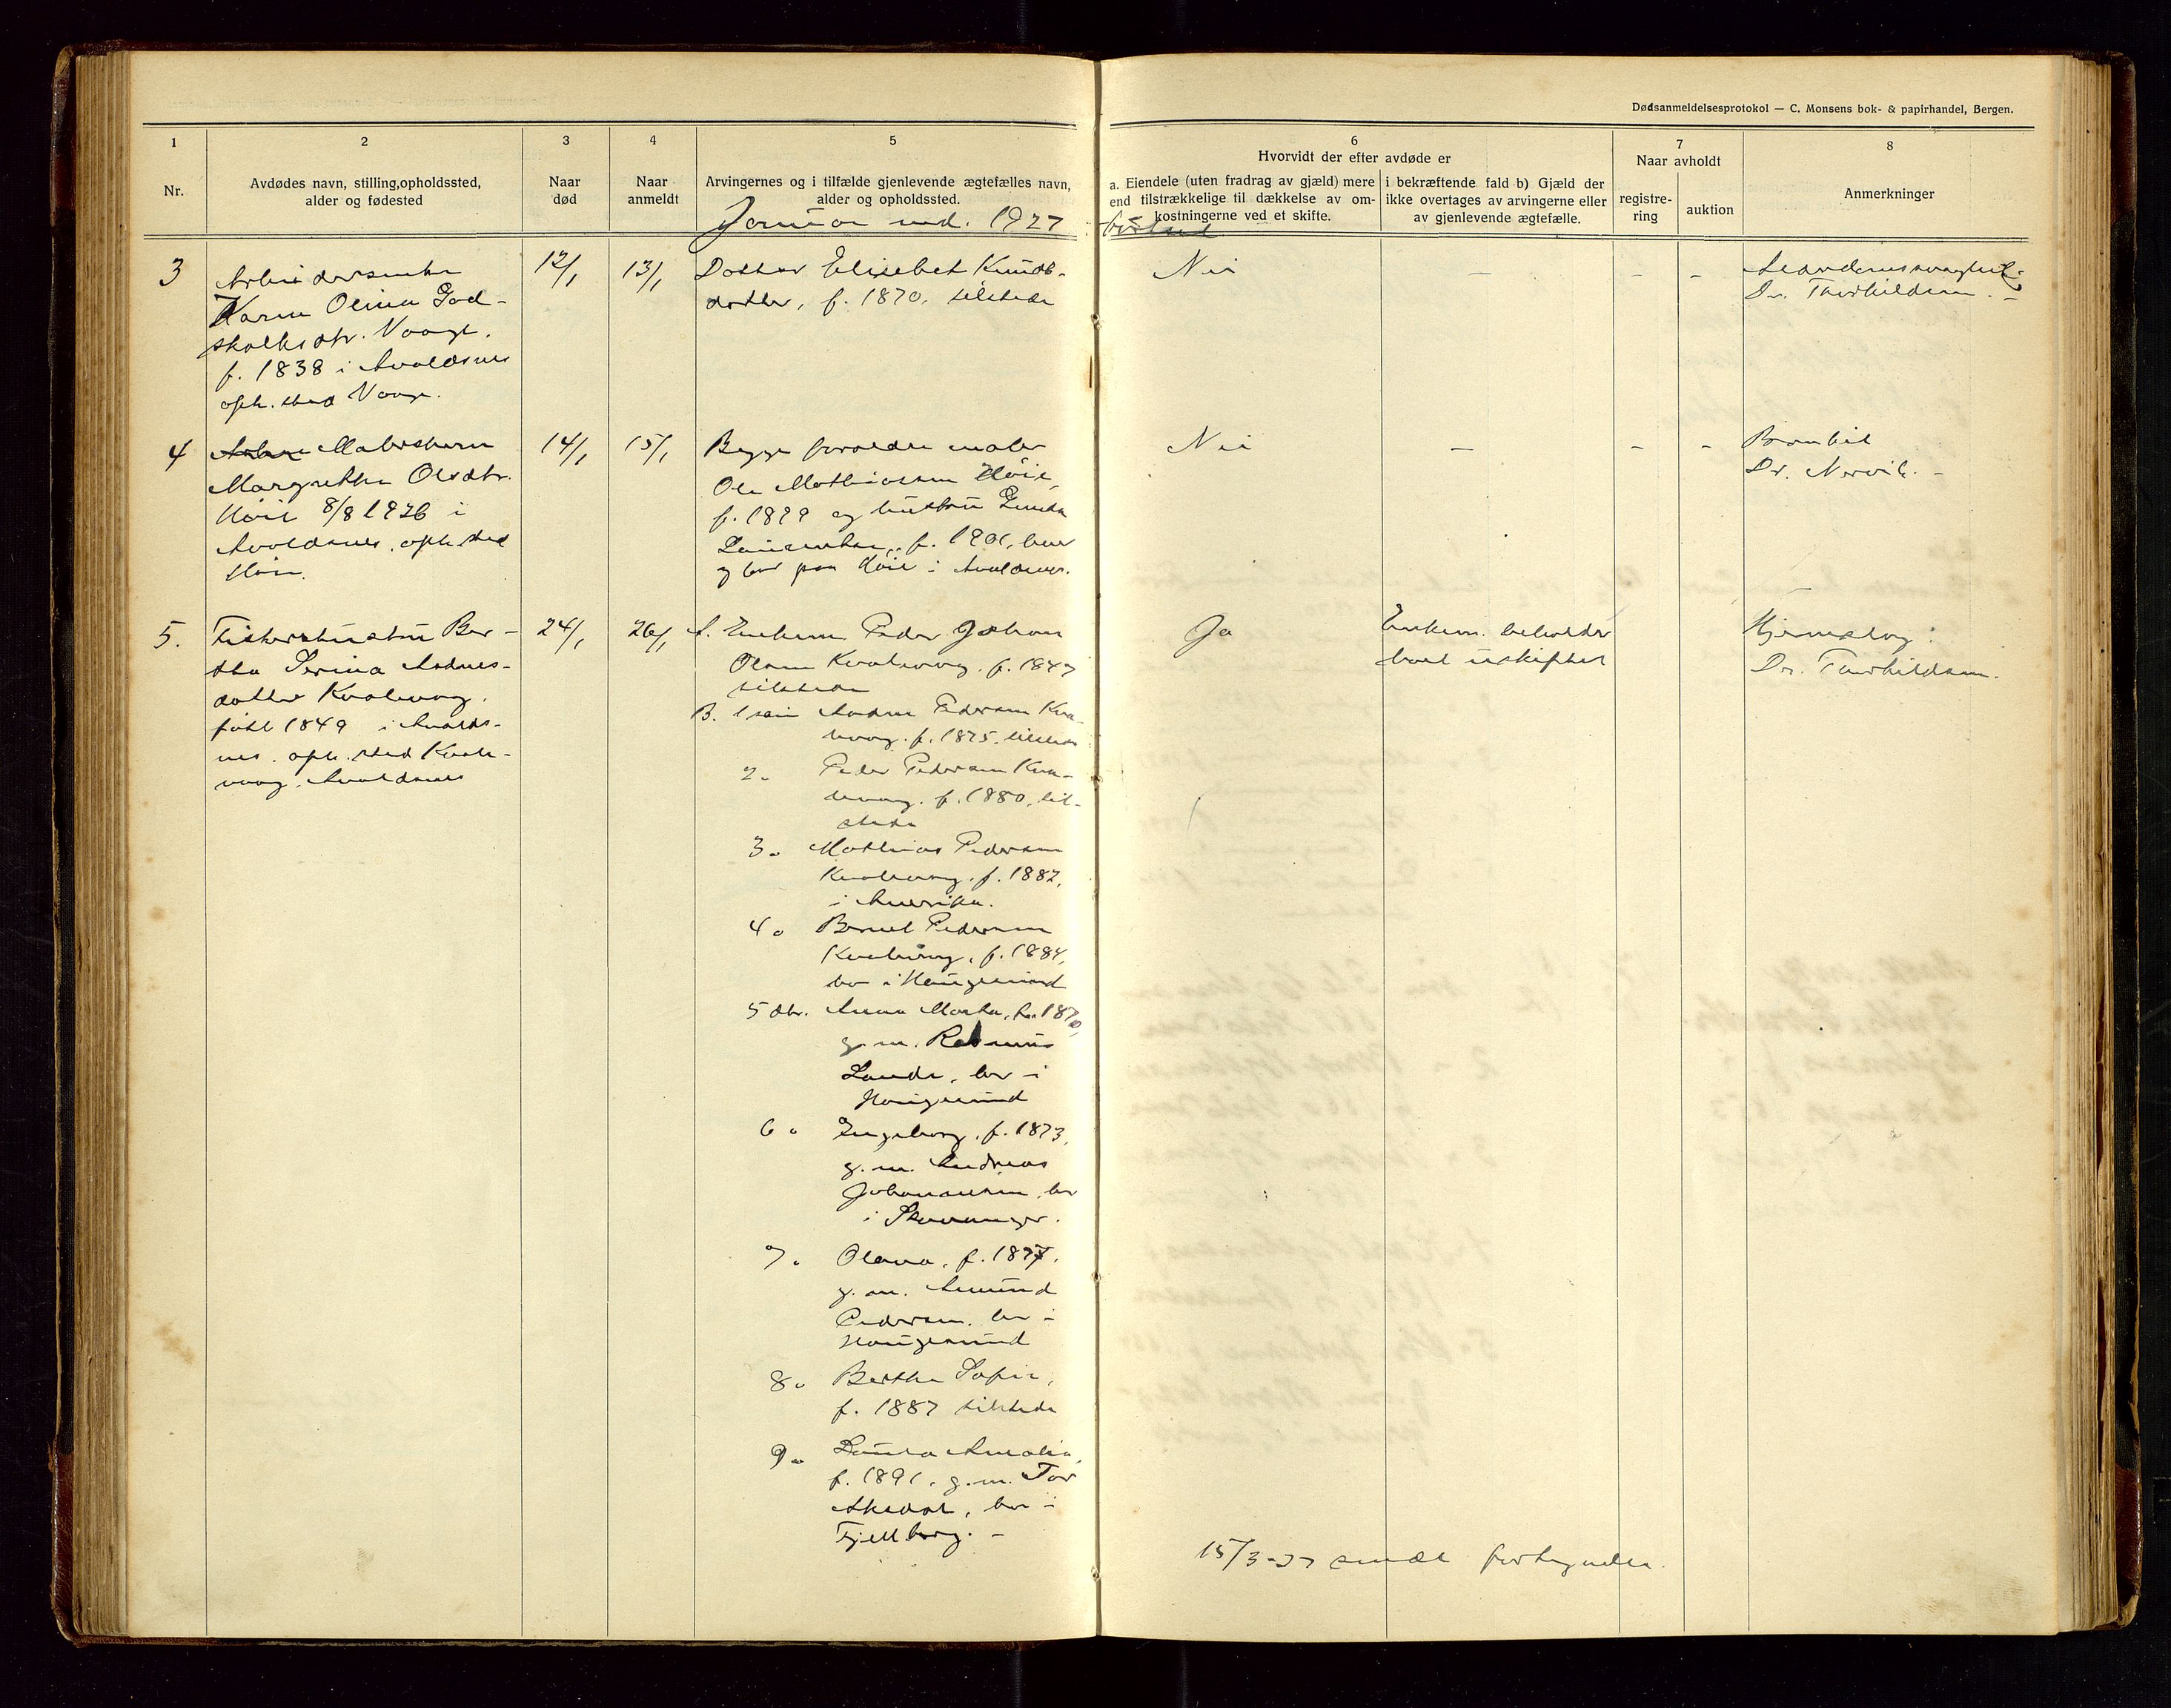 Dødsanmeldelsesprotokol — C. Monsens bok- & papirhandel, Bergen.
1
Nr.
2
Avdødes navn, stilling, opholdssted,
alder og fødested
3
Naar
død
4
Naar
anmeldt
5
Arvingernes og i tilfælde gjenlevende ægtefælles navn,
alder og opholdssted.
6
Hvorvidt der efter avdøde er
a. Eiendele (uten fradrag av gjæld) mere
end tilstrækkelige til dækkelse av om-
kostningerne ved et skifte.
i bekræftende fald b) Gjæld der
ikke overtages av arvingerne eller
av gjenlevende ægtefælle.
7
Naar avholdt
registre-
ring
auktion
8
Anmerkninger
Januar md. 1927
fortsat
3
Arbeidersenke
Karen Olina God-
skalksdtr. Vaage.
f. 1838 i Avaldsnes
oph. sted Vaage.
12/1
13/1
Datter Elisebet Knuds-
datter, f. 1870, tilstede
Nei
–
–
–
Alderdomssvaghet.
Dr. Thorkildsen. –
4
Matrosbarn
Margrethe Olsdtr.
Høie 8/8 1926 i
Avaldsnes. oph. sted
Høie.
14/1
15/1
Begge forældre matros
Ole Mathiassen Høie,
f. 1899 og hustru
f. 1901,
og bor paa Høie i Avaldsnes.
Nei
–
–
–
Dr. Nervik. –
5.
Fiskerhustru Ber-
tha Serina Asknes-
datter Kvalevaag.
født 1849 i Avalds-
nes. oph. sted Kvale-
vaag. Avaldsnes
24/1
26/1
A. Enkem. Peder Johan
Olsen Kvalevaag. f. 1847
tilstede
B. 1 søn Andreas Pedersen Kva-
levaag. f. 1875. tilstede
2 " Peder Pedersen Kva-
levaag. f. 1880, til-
stede
3 " Mathias Pedersen
Kvalevaag. f. 1882,
i Amerika.
4 " Bernt Pedersen
Kvalevaag. f. 1884,
bor i Haugesund
5 dtr. Anna Marta, f. 1870,
g. m. Rasmus
Lande, bor i
Haugesund
6 " Ingeborg, f. 1873,
g. m. Andreas
Johannesen, bor
i Stavanger.
7 " Olava, f. 1877,
g. m. Amund
Pedersen. bor i
Haugesund
8 " Bertha Sofie,
f. 1887 tilstede
9 " Laura Amalia,
f. 1891, g. m. Tor
Aksdal, bor i
Fjellberg. –
Ja
Enkem. beholder
boet uskiftet
Hjerneslag.
Dr. Thorkildsen.
15/3-27 sendt fortegnelse.